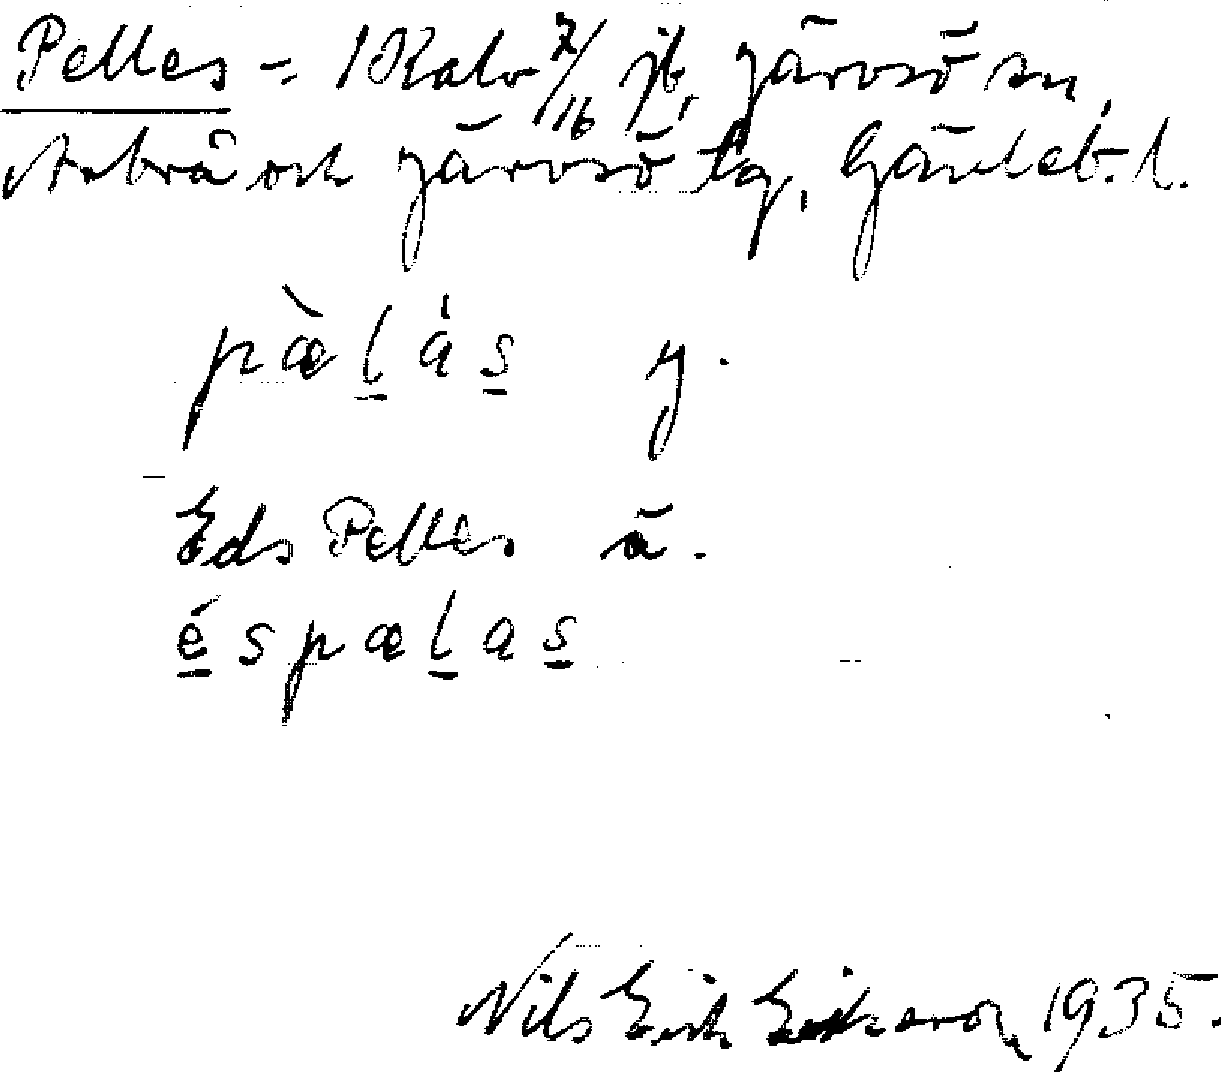 Pelles = 1 Kalv 7/16 jb, Järvsö sn,
Arbrå och Järvsö tg, Gävleb. l.
pæ̀l̠ás̠ y.
Eds Pelles ä.
é̠spæl̠as̠
Nils Erik Eriksson 1935.